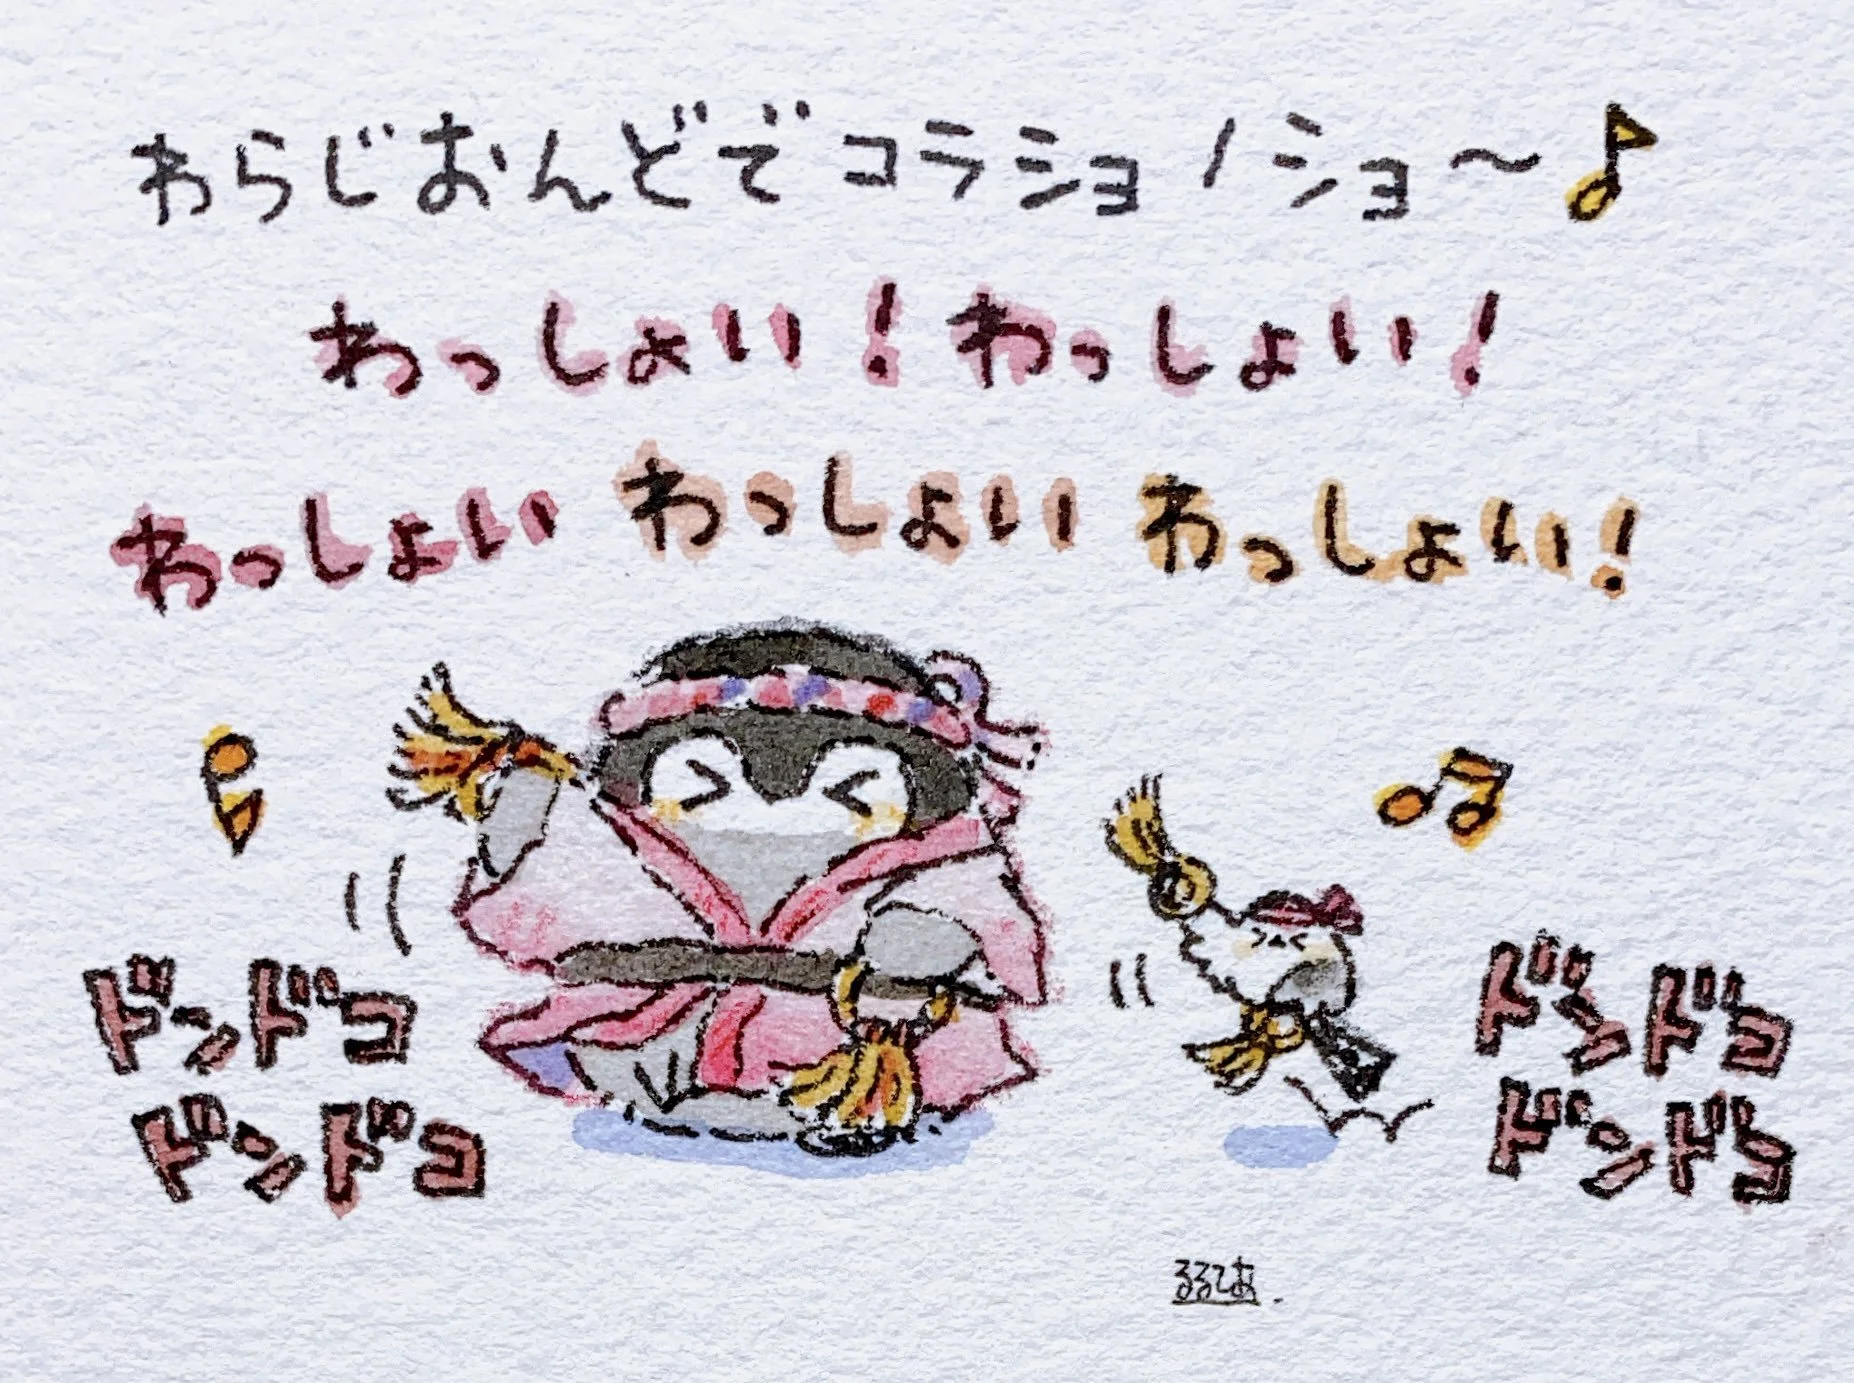 わらじおんどでコラショノショ〜♪
わっしょい！わっしょい！
わっしょい わっしょい わっしょい！
ドンドコ
ドンドコ
ドンドコ
ドンドコ
るるてあ.